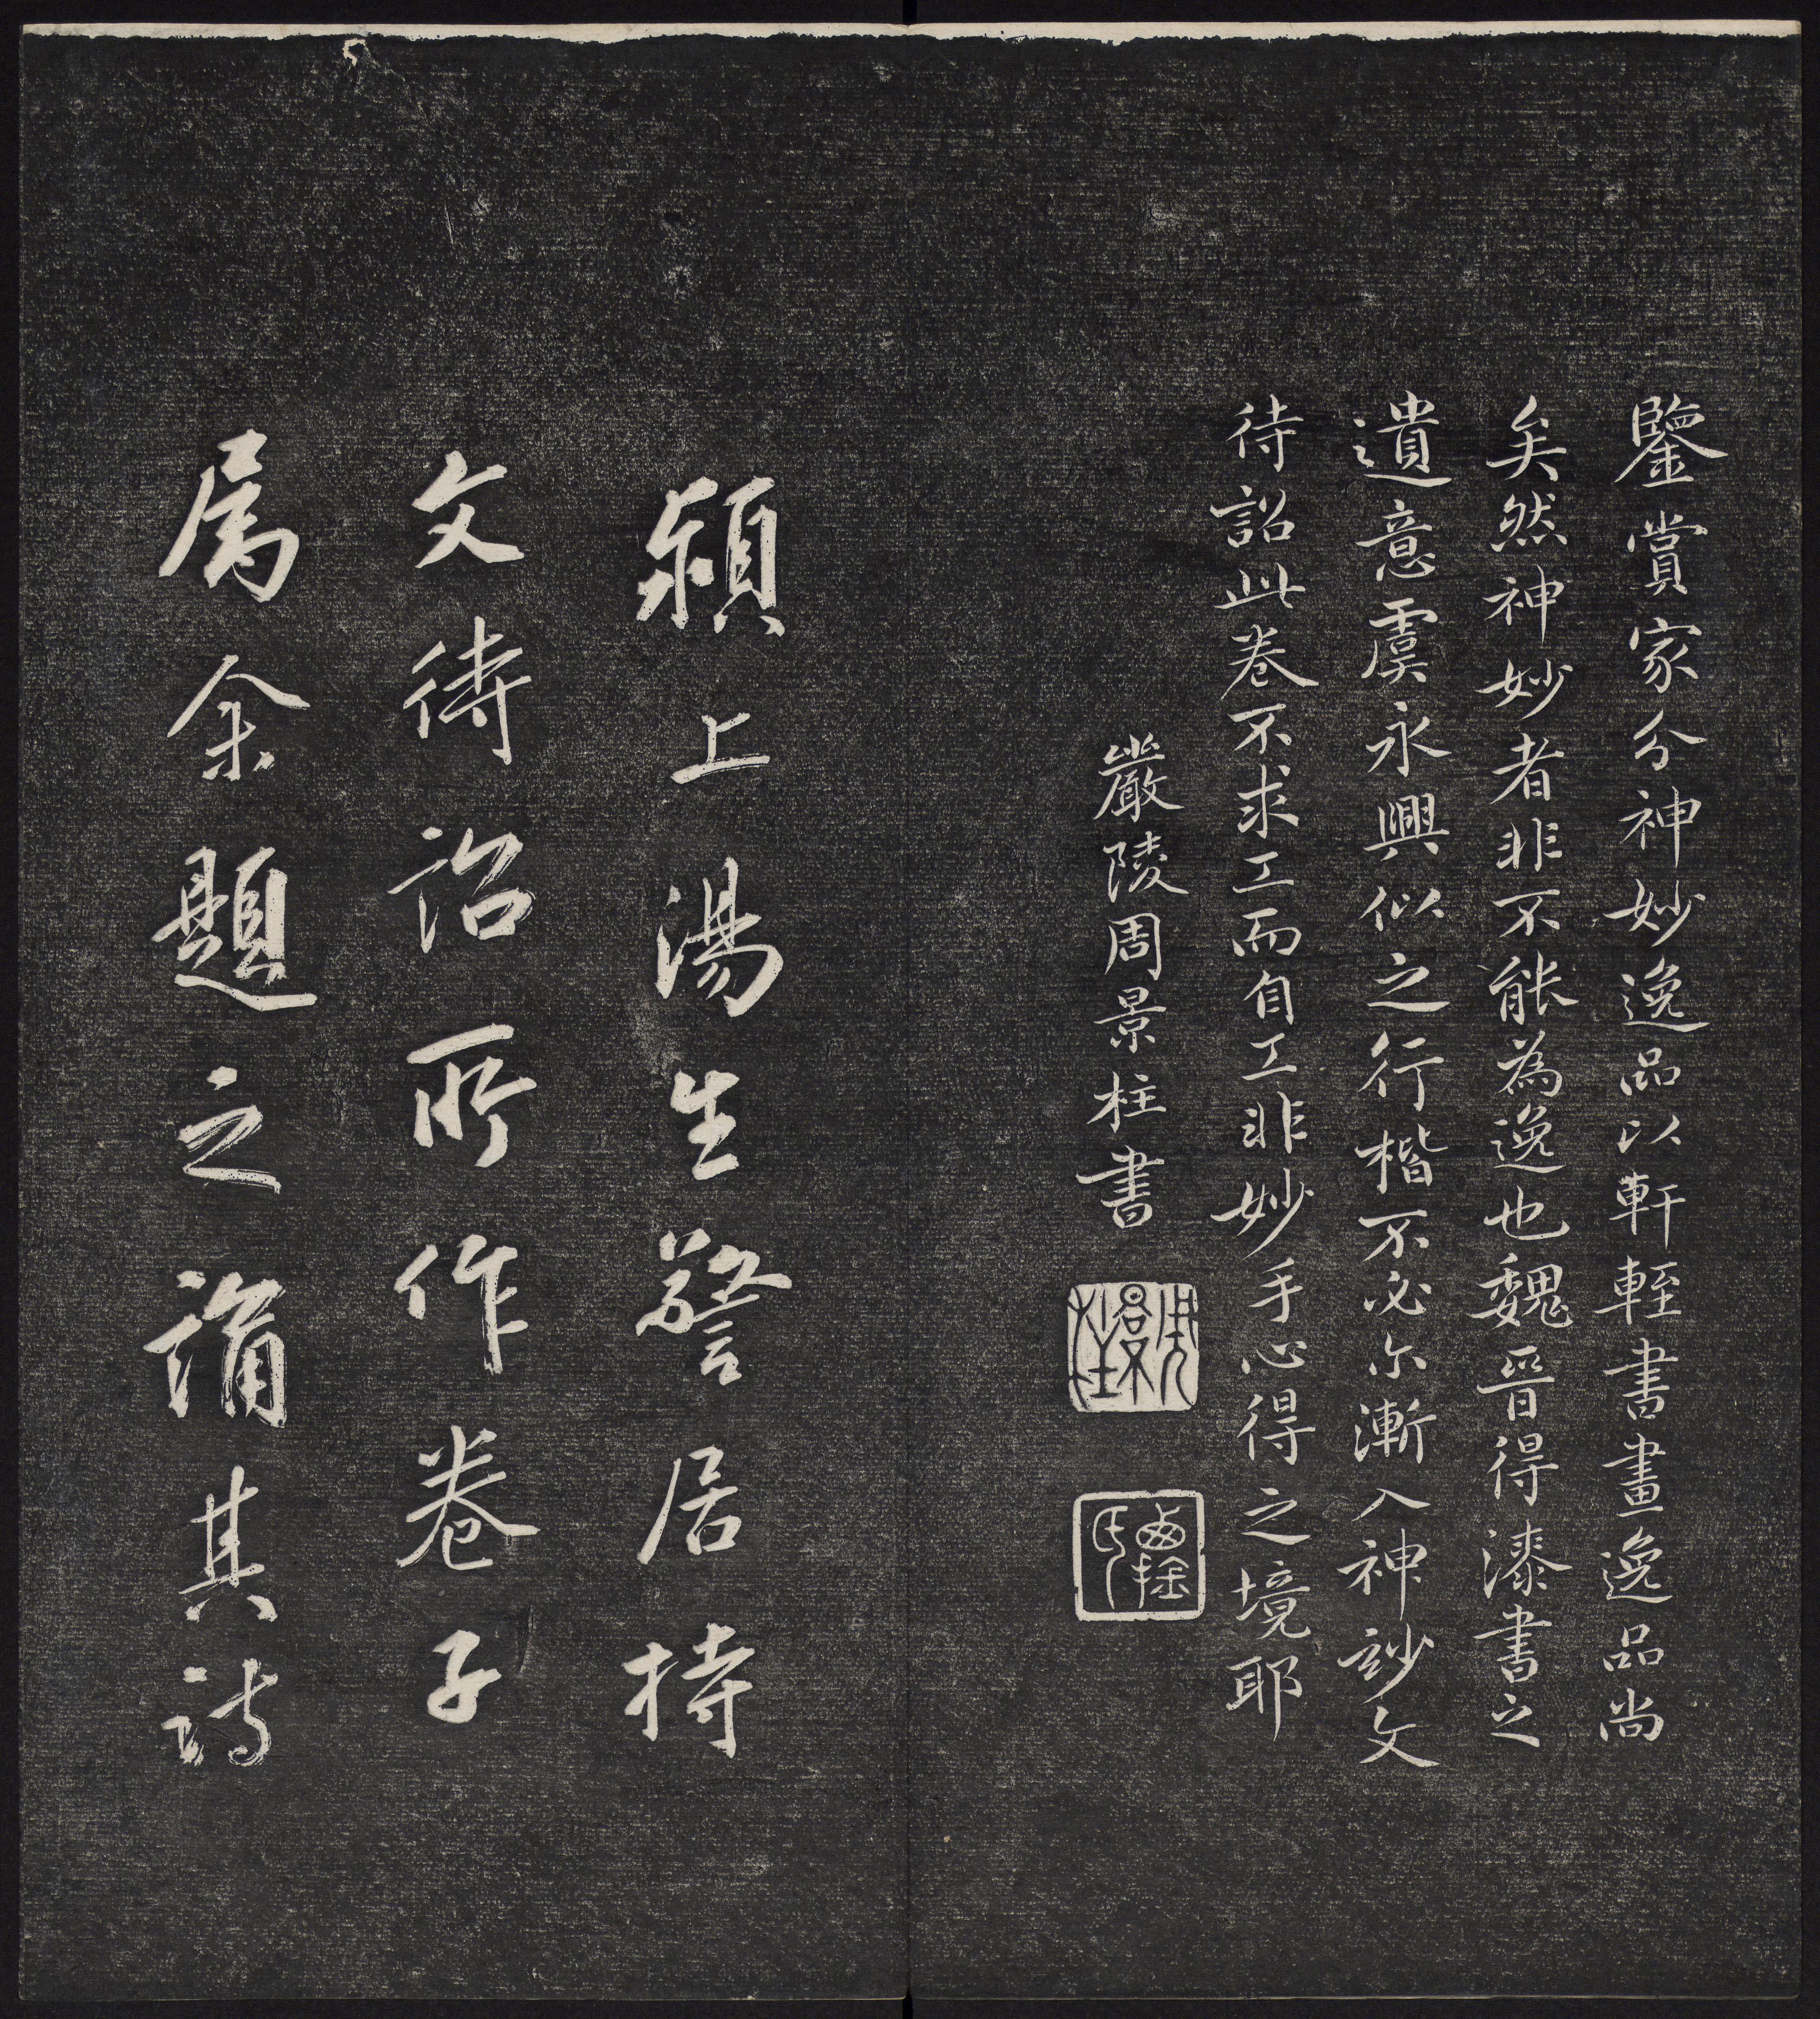 鑒賞家分神妙逸品以軒輊書畫逸品尚
矣然神妙者非不能為逸也魏晉得漆書之
遺意虞永興似之行楷不必尔漸入神妙文
待詔此卷不求工而自工非妙手心得之境耶
嚴陵周景柱書
周景柱
氏
潁上湯生警居持
文待詔所作卷子
属余題之誦其詩